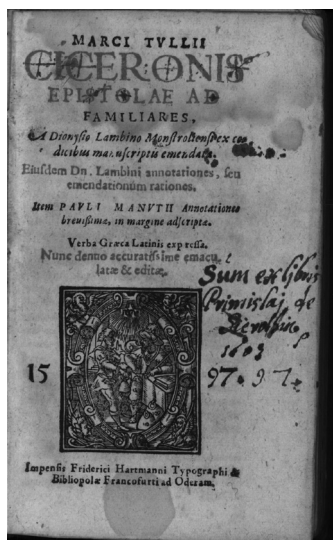 MARCI TVLLII
CICERONIS
EPISTOLAE AD
FAMILIARES,
A Dionysio Lambino Monstroliensi ex co-
dicibus manuscriptis emendatæ.
Eiusdem Dn. Lambini annotationes, seu
emendationum rationes.
Item PAVLI MANVTII Annotationes
breuissimæ, in margine adscriptæ.
Verba Græca Latinis expressa.
Nunc denuo accuratissime emacu-
latæ & editæ.
Sum ex libris
de
1603
15
97.
Impensis Friderici Hartmanni Typographi &
Bibliopolæ Francofurti ad Oderam.